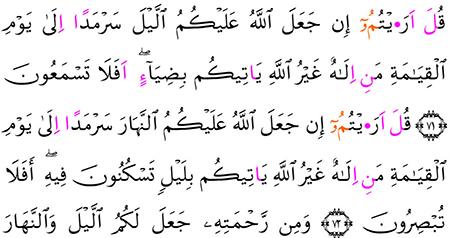 قُلَ اَرَ•يْتُمُۥٓ إِن جَعَلَ ٱللَّهُ عَلَيْكُمُ ٱلَّيْلَ سَرْمَدًا اِلَىٰ يَوْمِ
ٱلْقِيَـٰمَةِ مَنِ اِلَـٰهٌ غَيْرُ ٱللَّهِ يَاتِيكُم بِضِيَآءٍ ۖ اَفَلَا تَسْمَعُونَ
﴿٧١﴾ قُلَ اَرَ•يْتُمُۥٓ إِن جَعَلَ ٱللَّهُ عَلَيْكُمُ ٱلنَّهَارَ سَرْمَدًا اِلَىٰ يَوْمِ
ٱلْقِيَـٰمَةِ مَنِ اِلَـٰهٌ غَيْرُ ٱللَّهِ يَاتِيكُم بِلَيْلٍ تَسْكُنُونَ فِيهِ ۖ أَفَلَا
تُبْصِرُونَ ﴿٧٢﴾ وَمِن رَّحْمَتِهِۦ جَعَلَ لَكُمُ ٱلَّيْلَ وَٱلنَّهَارَ